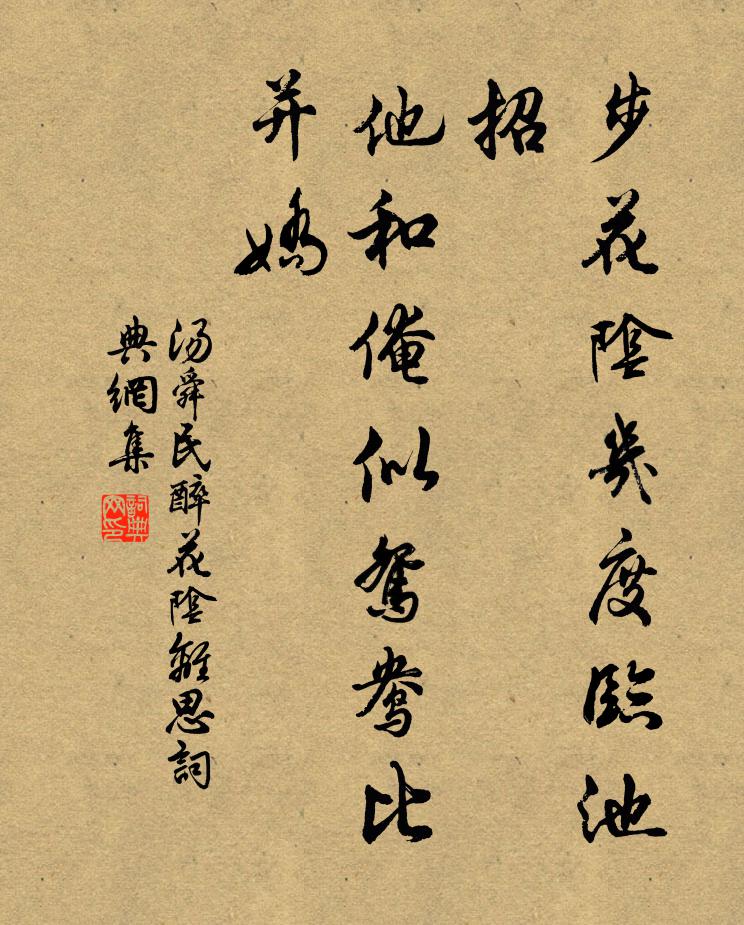 步花陰幾度臨池
招
他和俺似鴛鴦比
并嬌
汤舜民醉花陰離思詞
典網集
詞典网印